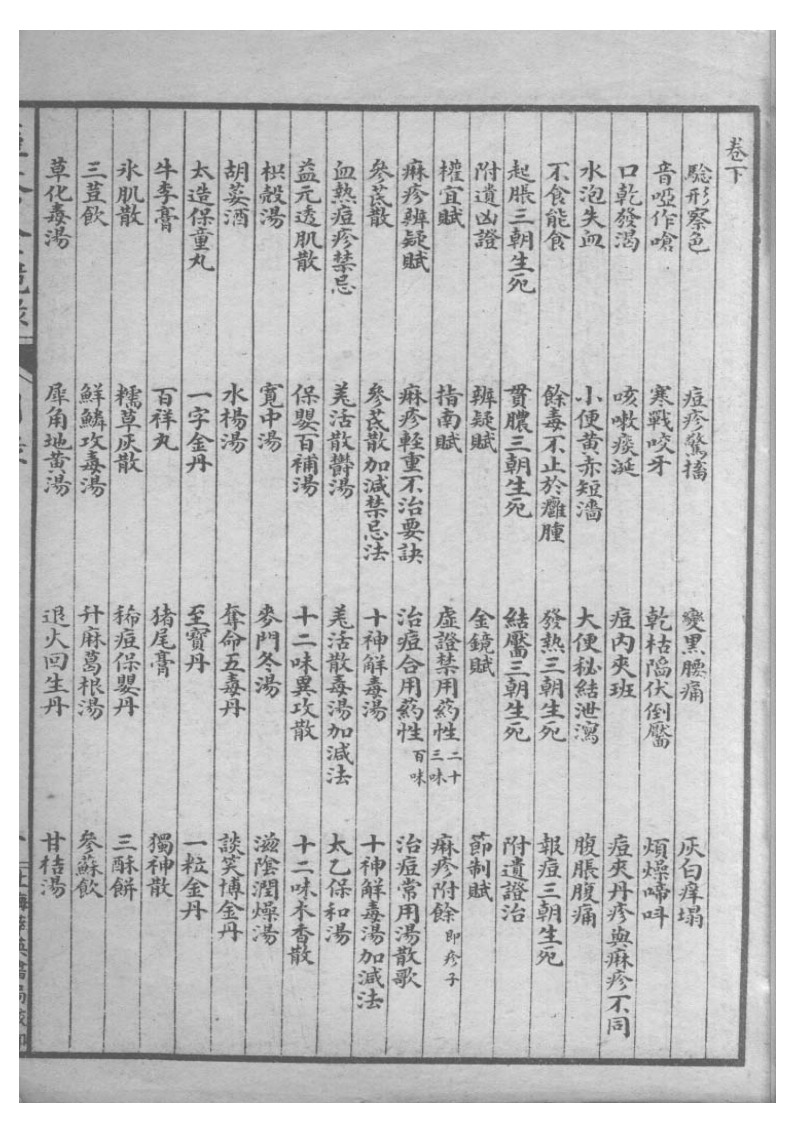 卷下
驗形察色 痘疹驚搐 變黑腰痛 灰白痒塌
音啞作嗆 寒戰咬牙 乾枯陷伏倒靨 煩燥啼呌
口乾發渴 咳嗽痰涎 痘內夾班 痘夾丹疹與麻疹不同
水泡失血 小便黃赤短濇 大便秘結泄瀉 腹脹腹痛
不食能食 餘毒不止於癰腫 發熱三朝生死 報痘三朝生死
起脹三朝生死 貫膿三朝生死 結靨三朝生死 附遺證治
附遺凶證 辨疑賦 金鏡賦 節制賦
權宜賦 指南賦 虛證禁用藥性二十三味 麻疹附餘即疹子
麻疹辨疑賦 麻疹輕重不治要訣 治痘合用藥性百味 治痘常用湯散歌
參芪散 參芪散加減禁忌法 十神解毒湯 十神解毒湯加減法
血熱痘疹禁忌 羌活散鬱湯 羌活散毒湯加減法 太乙保和湯
益元透肌散 保嬰百補湯 十二味異攻散 十二味木香散
枳殼湯 寬中湯 麥門冬湯 滋陰潤燥湯
胡荽酒 水楊湯 奪命五毒丹 談笑博金丹
太造保童丸 一字金丹 至寶丹 一粒金丹
牛李膏 百祥丸 猪尾膏 獨神散
氷肌散 糯草灰散 稀痘保嬰丹 三酥餅
三荳飲 鮮鱗攻毒湯 升麻葛根湯 參蘇飲
草化毒湯 犀角地黃湯 退火回生丹 甘桔湯